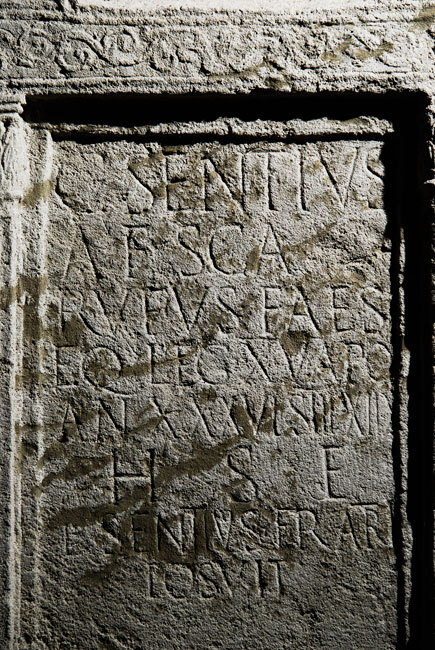 SENTIVS
A F SCA
RVFVS FAES
EQ LEG XV APO
AN XXXVI STIP XII
H S E
SENTIVS FRATR
POSVIT